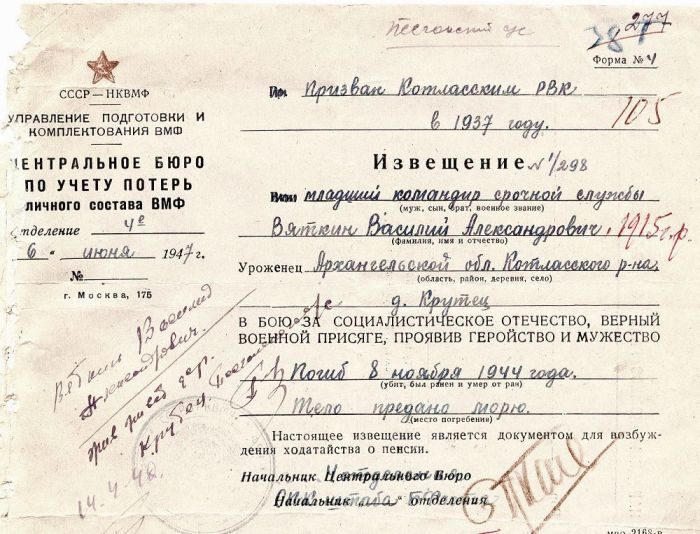 277
Форма № 4
СССР—НКВМФ
УПРАВЛЕНИЕ ПОДГОТОВКИ И
КОМПЛЕКТОВАНИЯ ВМФ
ЦЕНТРАЛЬНОЕ БЮРО
ПО УЧЕТУ ПОТЕРЬ
личного состава ВМФ
Отделение 4е
6 " июня 1947 г.
№
г. Москва, 175
Призван Котласским РВК
в 1937 году.
105
Извещение № 1/298
младший командир срочной службы
(муж, сын, брат, военное звание)
Вяткин Василий Александрович, 1915 г.р.
(фамилия, имя и отчество)
Уроженец Архангельской обл. Котласского р-на,
(область, район, деревня, село)
д. Крутец
В БОЮ ЗА СОЦИАЛИСТИЧЕСКОЕ ОТЕЧЕСТВО, ВЕРНЫЙ
ВОЕННОЙ ПРИСЯГЕ, ПРОЯВИВ ГЕРОЙСТВО И МУЖЕСТВО
Погиб 8 ноября 1944 года.
(убит, был ранен и умер от ран)
Тело предано морю.
(место погребения)
Настоящее извещение является документом для возбуж-
дения ходатайства о пенсии.
Начальник Центрального Бюро
Начальник " " отделения
Вяткин Василий
Александрович.
14.4.48